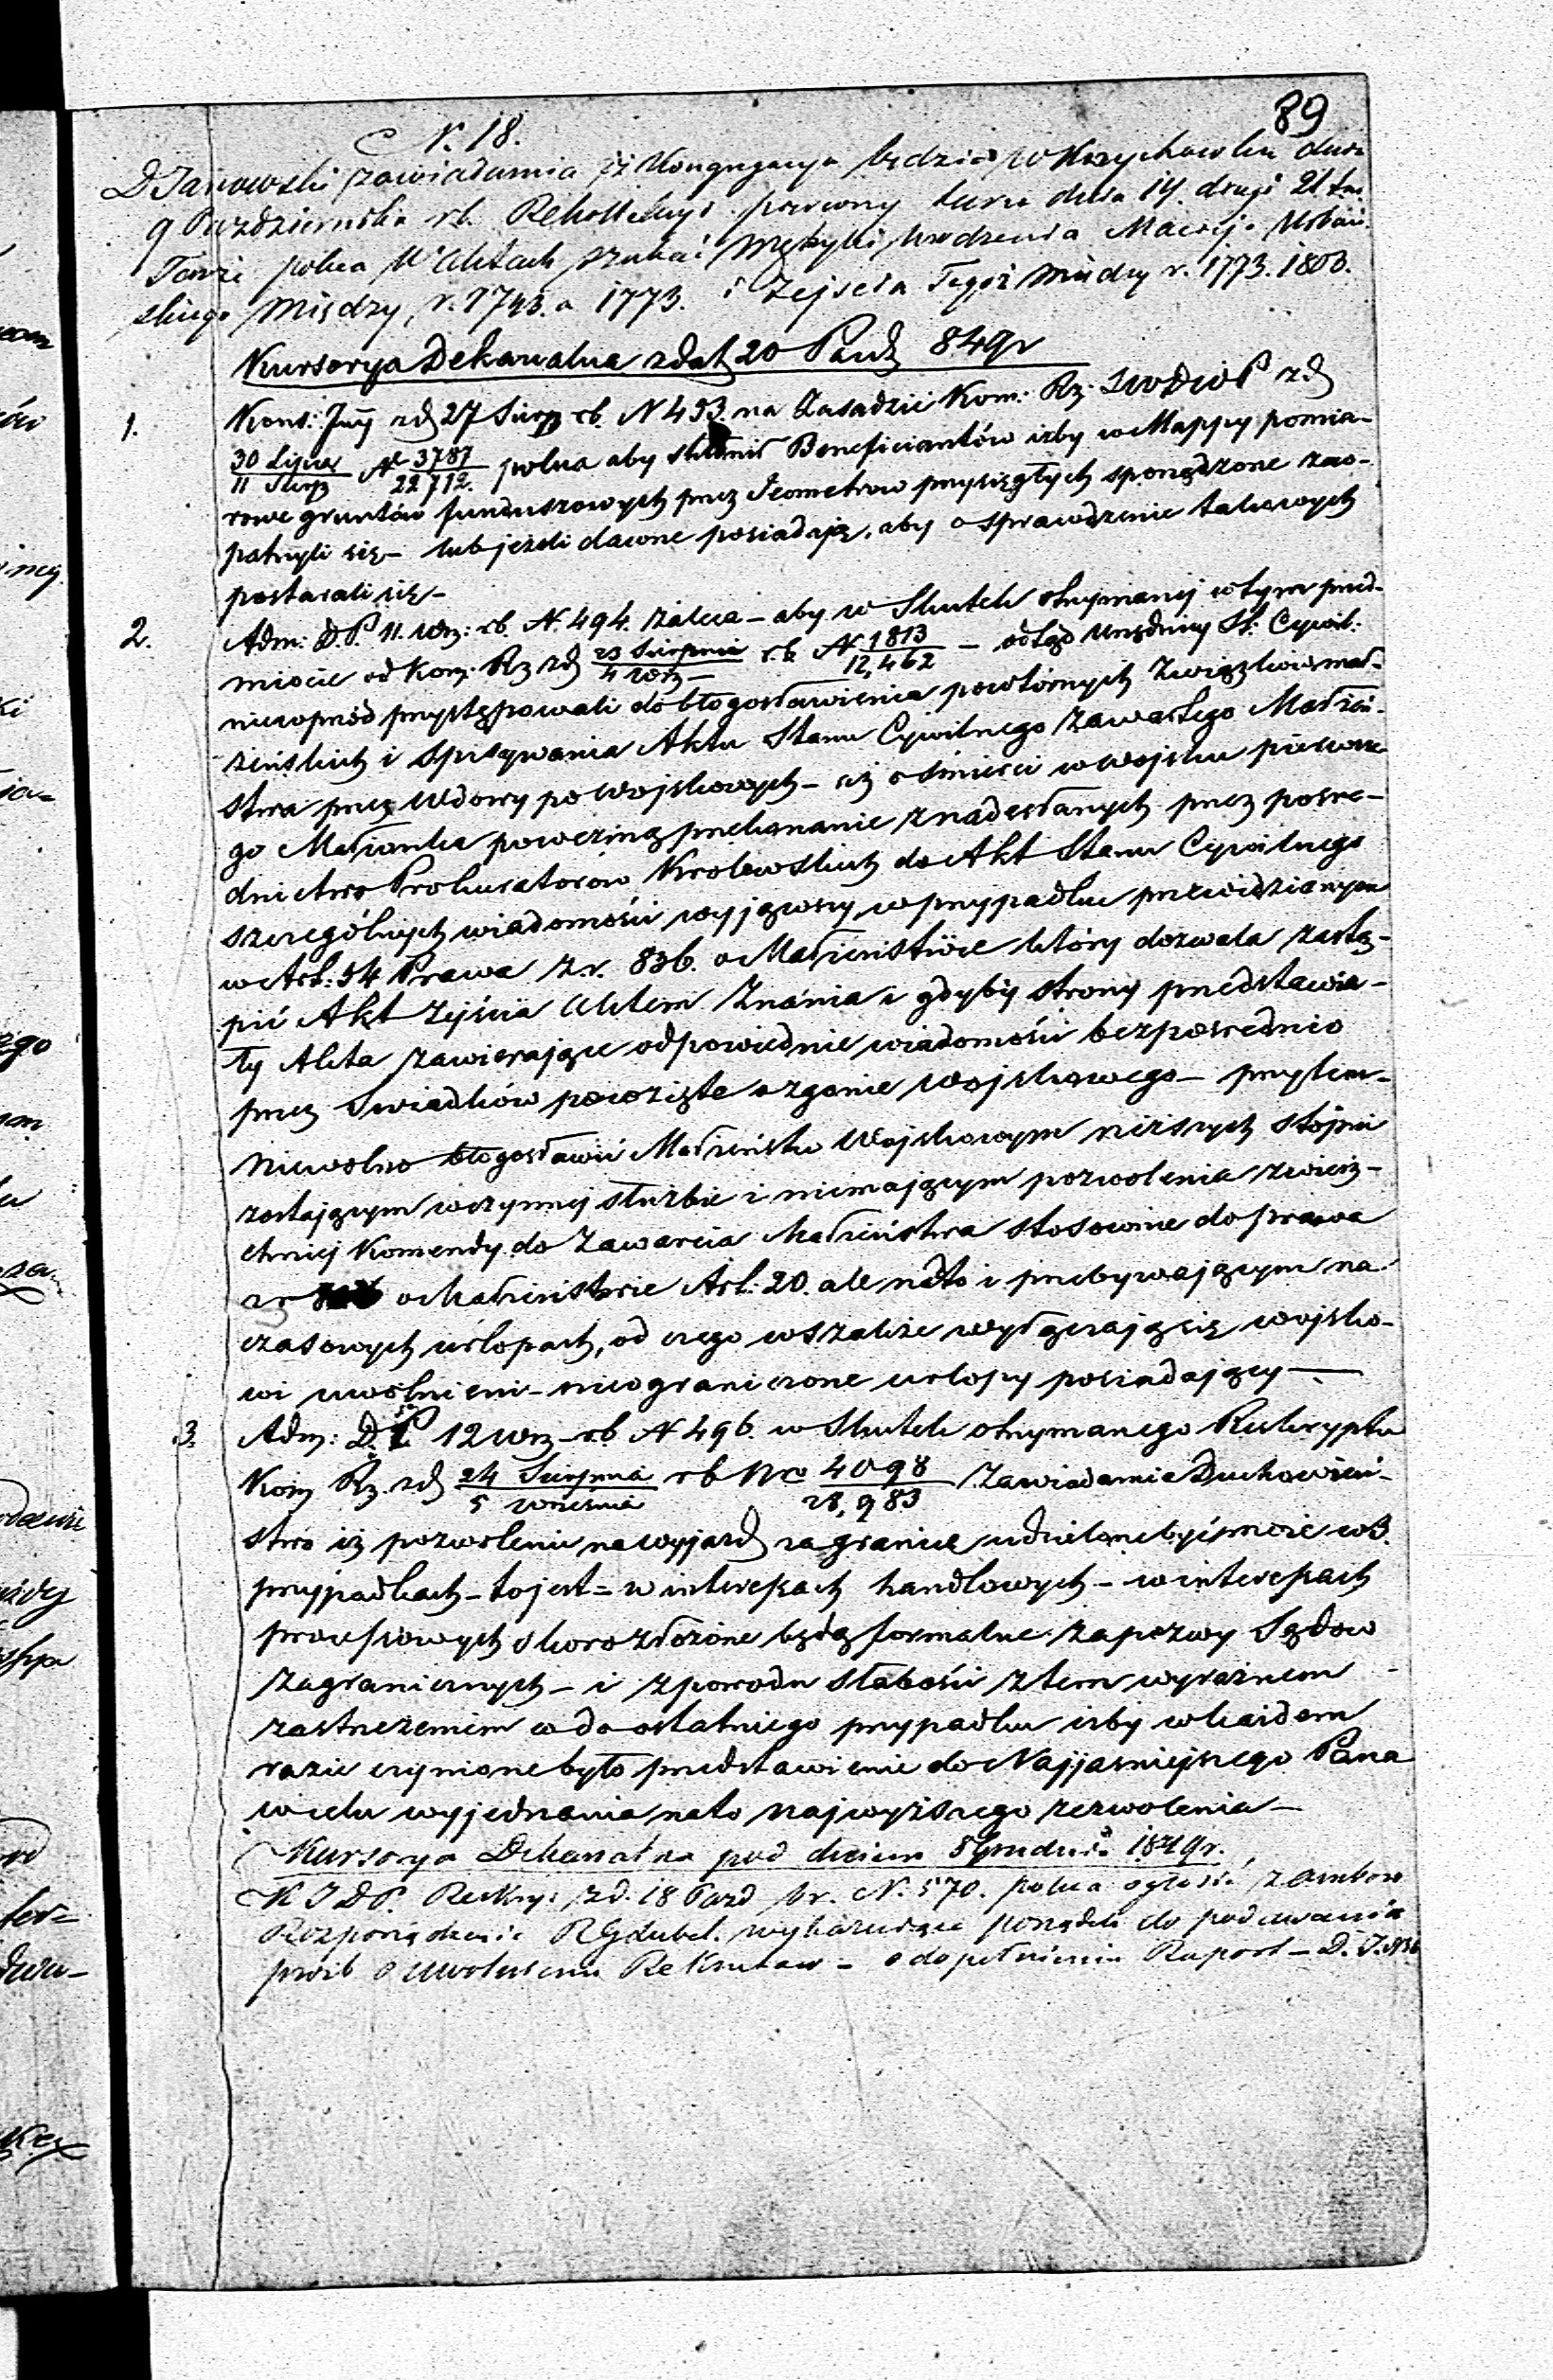 89
N. 18.
D Janowski zawiadamia iż Kongregacya będzie w Korychowku dnia
9 Pazdziernika rb. Rekollekcyi pierwszy turn dnia 14. drugi 21. t.m.
Tenże poleca W Aktach szukać Metryki Urodzenia Macieja Urbań-
skiego między r. 1743. a 1773. i Zejscia Tegoż między r. 1773. 1803.
Kursorya Dekanalna z dat 20 Paźd 849r
1. Kons: Jnj zd 27 Sierp rb. N 493. na Zasadzie Kom: Rz: SWDWOP zd
30 Lipca / 11 Sierp N 3787 / 22712. poleca aby skłonić Beneficiantów iżby w Mappy pomia-
rowe gruntów funduszowych przez Jeometrow przysięgłych sporządzone zao-
patrzyli się - lub jeżeli dawne posiadają, aby o sprawdzenie takowych
postarali się -
2. Adm: D.P. 11. Wrz: rb. N. 494. zaleca - aby w Skutek otrzymanej w tym przed-
miocie od Kom: Rz zd 23 Sierpnia / 4 Wrz - r.b. N 1813 / 12,462 - odtąd Urzędnicy St: Cywil:
niewprzód przystępowali do błogosławienia powtórnych Związków mał-
żeńskich i spisywania Aktu Stanu Cywilnego zawartego Małżeń-
stwa przez Wdowy po Wojskowych - aż o śmierci w wojsku pierwsze-
go Małżonka powezmą przekonanie z nadesłanych przez pośre-
dnictwo Prokuratorów Krolewskich do Akt Stanu Cywilnego
szczególnych wiadomości wyjąwszy w przypadku przewidzianym
w Art: 54 Prawa z r. 836. o Małżeństwie który dozwala zastą-
pić Akt Zejścia Aktem Znania i gdyby strony przedstawia-
ły Akta zawierające odpowiednie wiadomości bezpośrednio
przez Swiadków powzięte o zgonie Wojskowego - przytem -
niewolno błogosławić Małżeństw Wojskowym niższych stopni
zostającym w czynnej służbie i niemającym pozwolenia zwierz-
chniej Komendy do Zawarcia Małżeństwa stosownie do prawa
z r o Małżeństwie Art: 20. ale nadto i przebywającym na
czasowych urlopach, od czego wszakże wyłączają się wojsko-
wi uwolnieni - nieograniczone urlopy posiadający -
3. Adm: D. P 12 Wrz - rb N 496. w Skutek otrzymanego Reskryptu
Kom Rz. zd 24 Sierpnia / 5 września rb Nro 4098 / 28,983 Zawiadamia Duchowień-
stwo iż pozwolenie na wyjazd zagranicę udzielone być może w 3.
przypadkach - to jest = w interessach handlowych - w interessach
processowych skoro złożone będą formalne zapozwy Sądow
zagranicznych - i z powodu słabości z tem wyraźnem -
zastrzeżeniem co do ostatniego przypadku iżby w każdem
razie czynione było przedstawienie do Najjasniejszego Pana
w celu wyjednania na to najwyższego zezwolenia -
Kursorya Dekanalna pod dniem 8 Grudnia 1849 r.
K J D P. zd. 18 Pazd br. N. 570. poleca ogłosić z ambon
Rozporządzenie RGLubel. wykazujące porządek do podawania
prośb o uwolnienie Rekrutow - o dopełnieniu Raport - D. J.